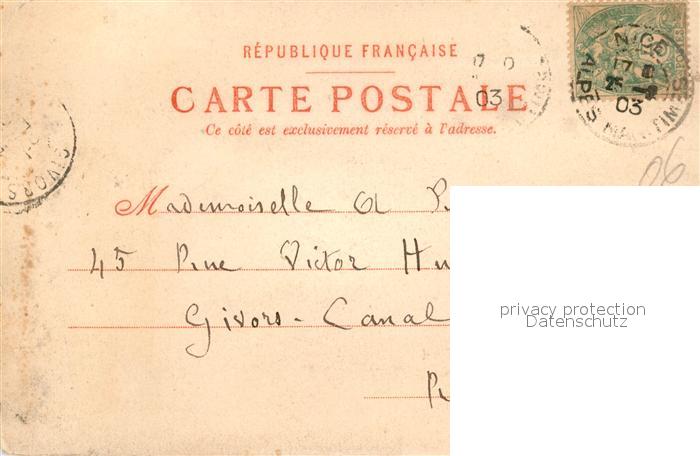 RÉPUBLIQUE FRANÇAISE
CARTE POSTALE
Ce côté est exclusivement réservé à l'adresse.
NICE
17
25
03
ALPES MARITIMES
17
03
GIVORS
06
Mademoiselle A
45 Rue Victor Hu
Givors - Canal
privacy protection
Datenschutz